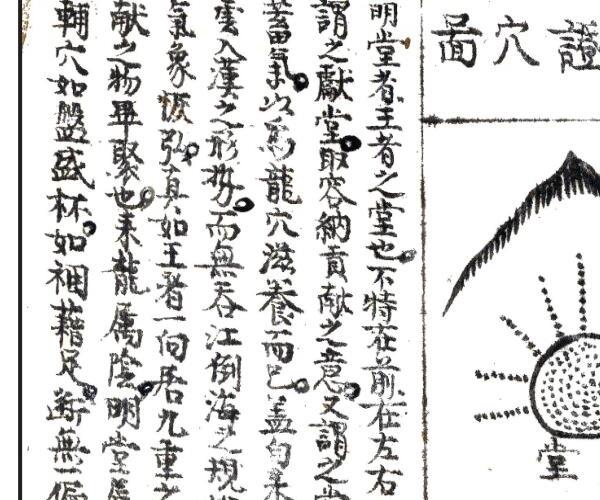 證穴啚
堂
明堂者王者之堂也不特在前在左右
謂之獻堂取容納貢献之意又謂之
蓄氣以為龍穴滋養而已盖自来
雲入漢之形势而無吞江倒海之規
氣象恢弘真如王者一向居九重之
献之物畢聚也来龍属陰明堂属
輔穴如盤盛杯如裀藉足断無一偏